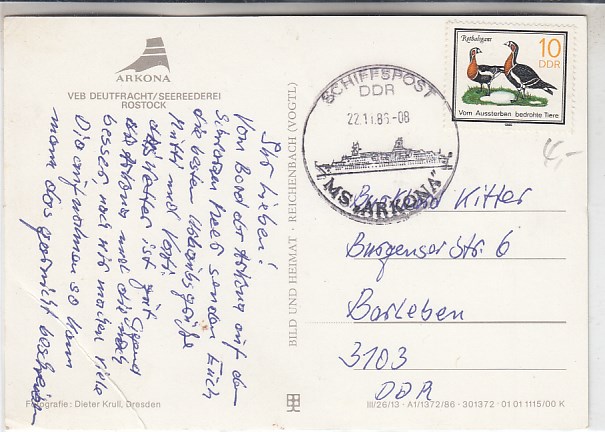 ARKONA
VEB DEUTFRACHT/SEEREEDEREI
ROSTOCK
Ihr Lieben!
Vom Bord der Arkona auf dem
Schwarzen Meer senden Euch
die besten Urlaubsgrüße
Mutti und Vati.
das Wetter ist gut
die Arkona und die
besser noch wir machen viele
Dia aufnahmen so kann
mann das garnicht beschreiben
Fotografie: Dieter Krull, Dresden
BILD UND HEIMAT · REICHENBACH (VOGTL)
SCHIFFSPOST
DDR
22.11.86-08
MS „ARKONA"
Rothalsgans
10
DDR
Vom Aussterben bedrohte Tiere
4,-
Kitter
Burgenser Str. 6
Barleben
3103
DDR
III/26/13 · A1/1372/86 · 301372 · 01 01 1115/00 K